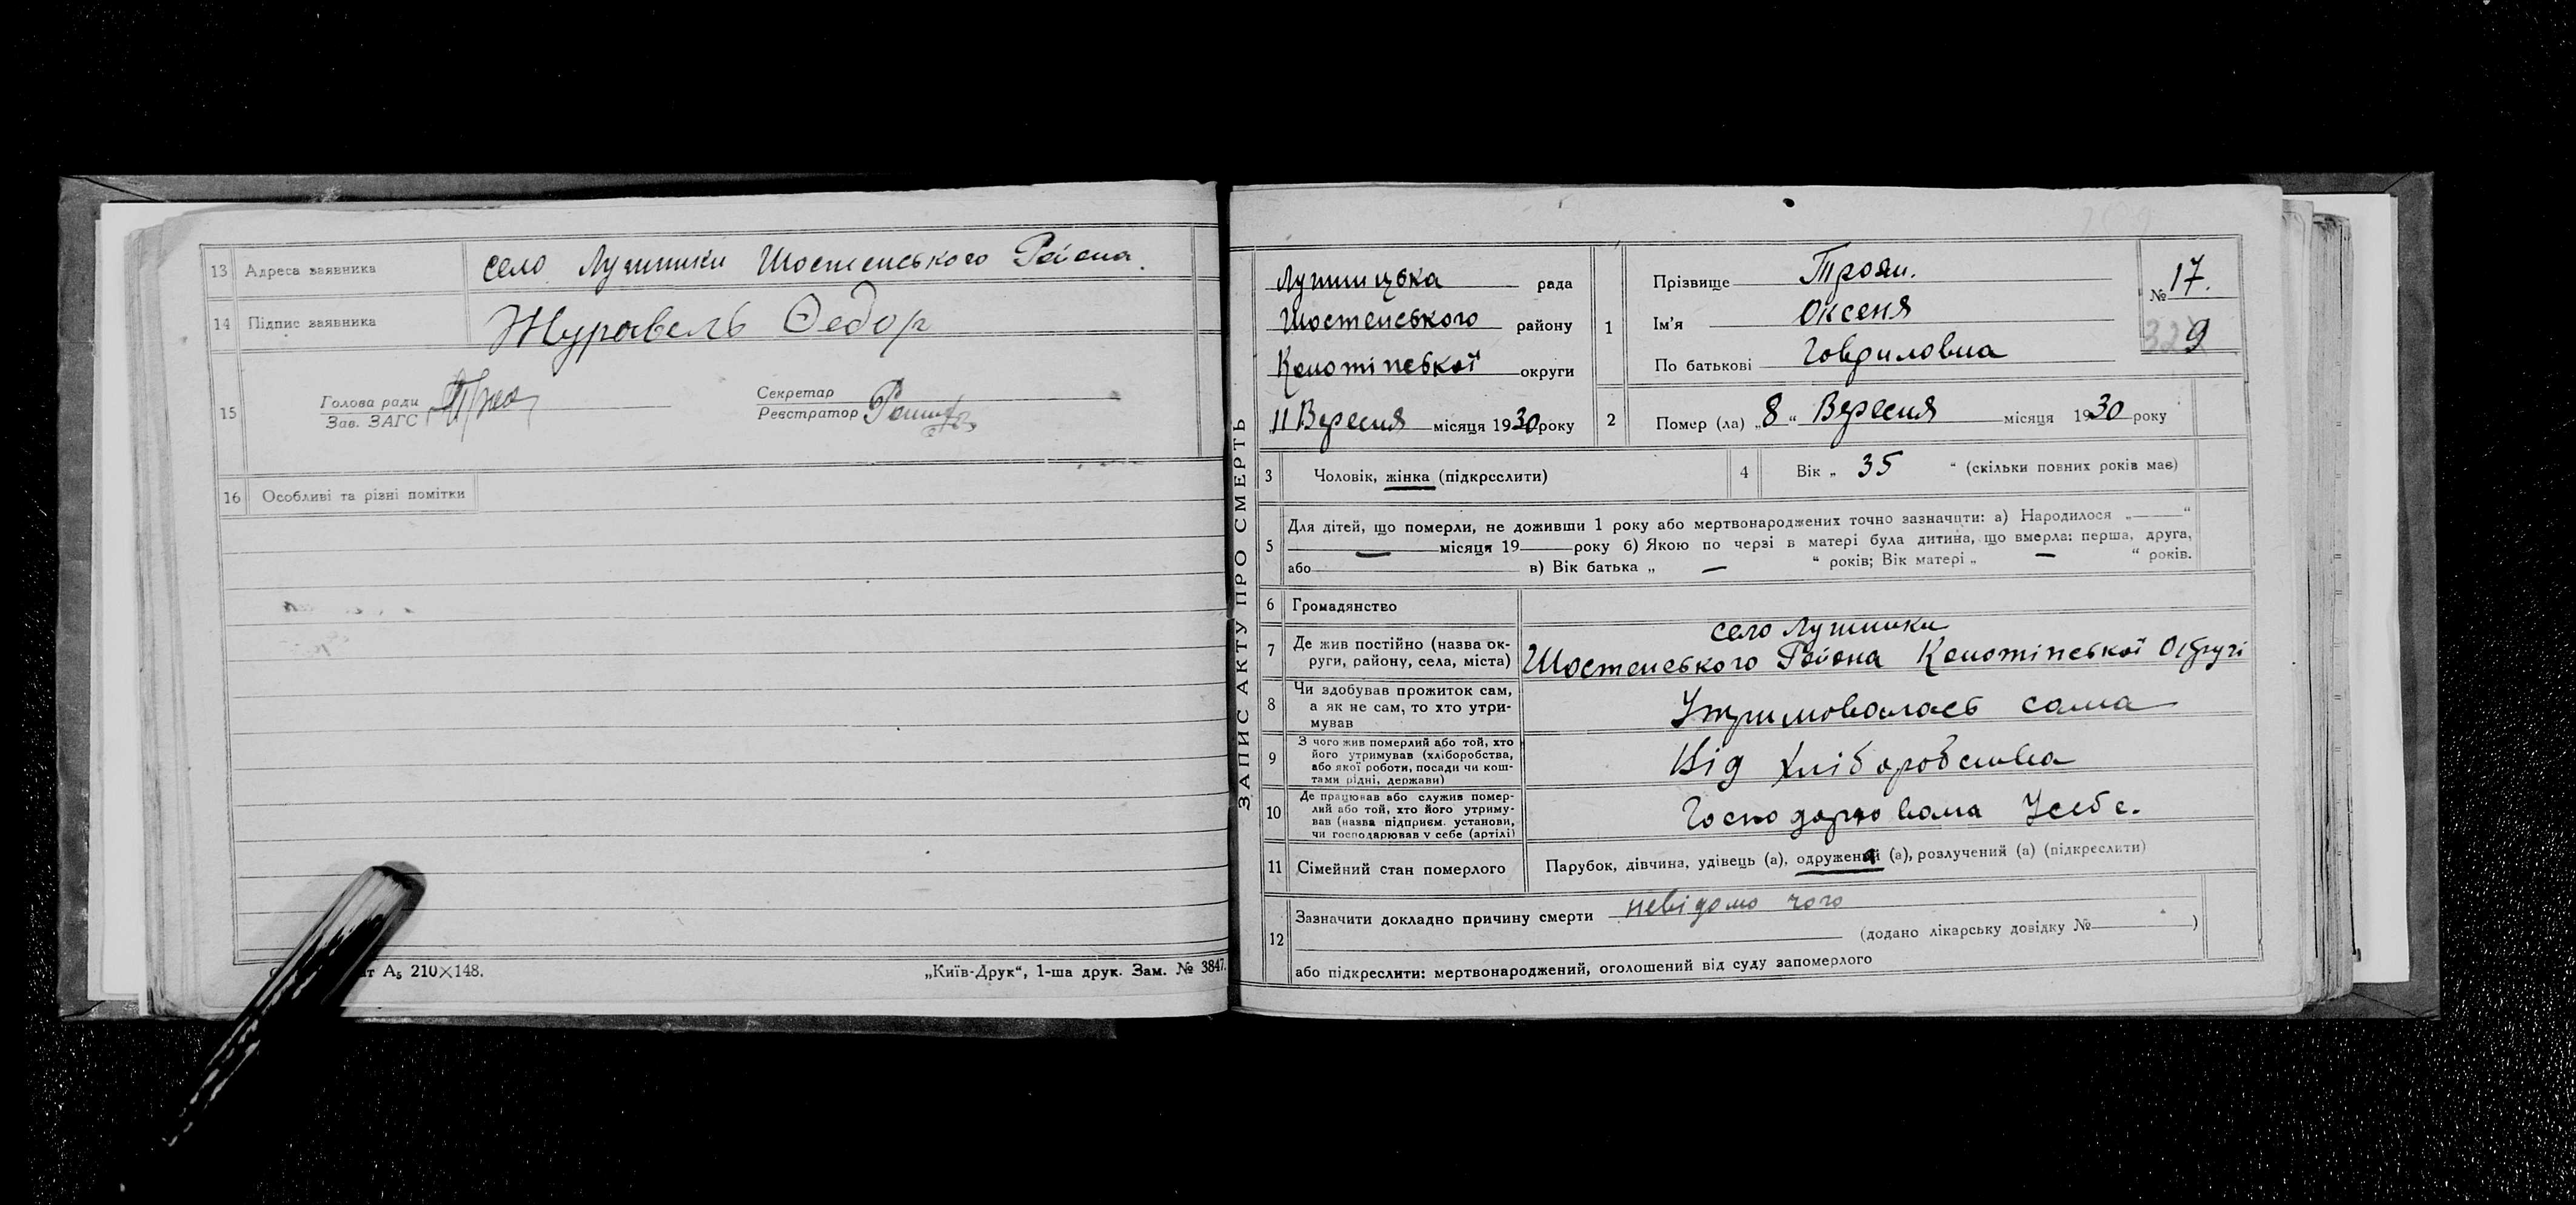 13 Адреса заявника село Лушники Шостенського Района.
14 Підпис заявника Журавель Федор
15 Голова ради
Зав. ЗАГС
Секретар
Реєстратор
16 Особливі та різні помітки
т А₅ 210×148.
„Київ-Друк“, 1-ша друк. Зам. № 3847.
ЗАПИС АКТУ ПРО СМЕРТЬ
Лушницька рада
Шостенського району
Конотіпської округи
11 Вересня місяця 1930 року
1 Прізвище Троян.
Ім'я Оксеня
По батькові Говриловна
№ 17.
9
2 Помер (ла) „8“ Вересня місяця 1930 року
3 Чоловік, жінка (підкреслити)
4 Вік „ 35 “ (скільки повних років має)
5 Для дітей, що померли, не доживши 1 року або мертвонароджених точно зазначити: а) Народилося „—“
— місяця 19 року б) Якою по черзі в матері була дитина, що вмерла: перша, друга,
або в) Вік батька „ — “ років; Вік матері „ — “ років.
6 Громадянство
7 Де жив постійно (назва ок-
руги, району, села, міста)
село Лушники
Шостенського Района Конотіпської Округі
8 Чи здобував прожиток сам,
а як не сам, то хто утри-
мував
Утримовалась сама
9 З чого жив померлий або той, хто
його утримував (хліборобства,
або якої роботи, посади чи кош-
тами рідні, держави)
Від хліборобства
10 Де працював або служив помер-
лий або той, хто його утриму-
вав (назва підприєм. установи,
чи господарював у себе (артілі)
Господарювала Усебе.
11 Сімейний стан померлого Парубок, дівчина, удівець (а), одружений (а), розлучений (а) (підкреслити)
12 Зазначити докладно причину смерти невідомо чого
(додано лікарську довідку № )
або підкреслити: мертвонароджений, оголошений від суду запомерлого